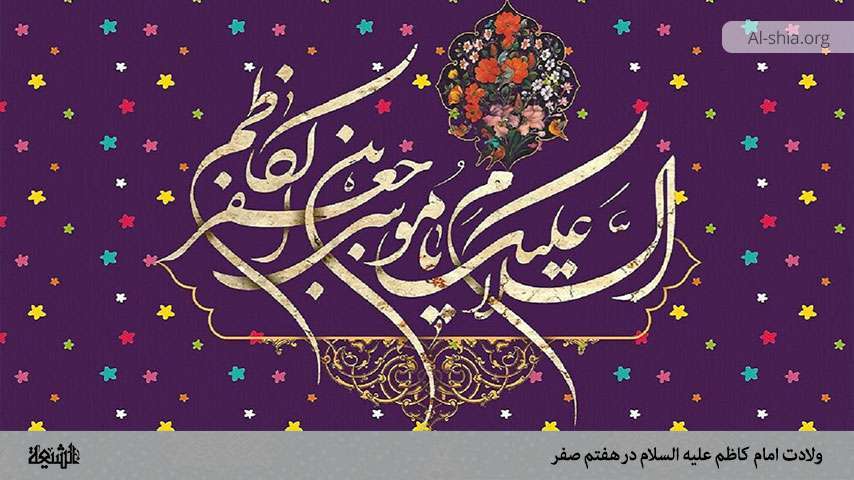 Al-shia.org
السلام علیک یا موسی بن جعفر الکاظم
ولادت امام کاظم علیه السلام در هفتم صفر
الشیعة